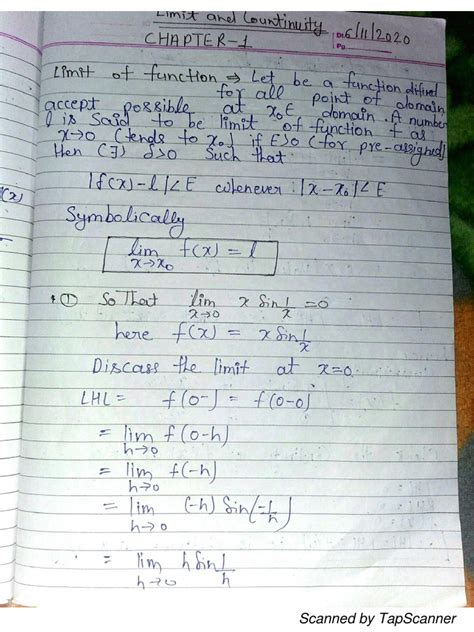 Limit and Countinuity
CHAPTER-1
Dt. 6/11/2020
Pg.
Limit of function ⇒ Let be a function difined
for all point of domain
accept possible at x₀∈ domain. A number
l is said to be limit of function f as
x→0 (tends to x₀) if E>0 (for pre-assigned)
then (∃) δ>0 Such that
|f(x)-l|<E whenever |x-x₀|<E
f(x)
Symbolically
lim f(x) = l
x→x₀
① So That lim x Sin 1/x =0
x→0
here f(x) = x Sin 1/x
Discass the limit at x=0
LHL = f(0-) = f(0-0)
= lim f(0-h)
h→0
= lim f(-h)
h→0
= lim (-h) Sin(-1/h)
h→0
= lim h Sin 1/h
h→0
Scanned by TapScanner